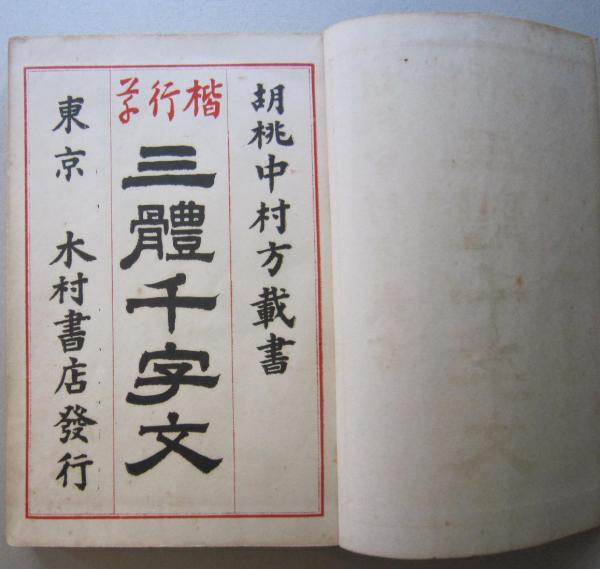 胡桃中村方載書
楷行草
三體千字文
東京 木村書店發行